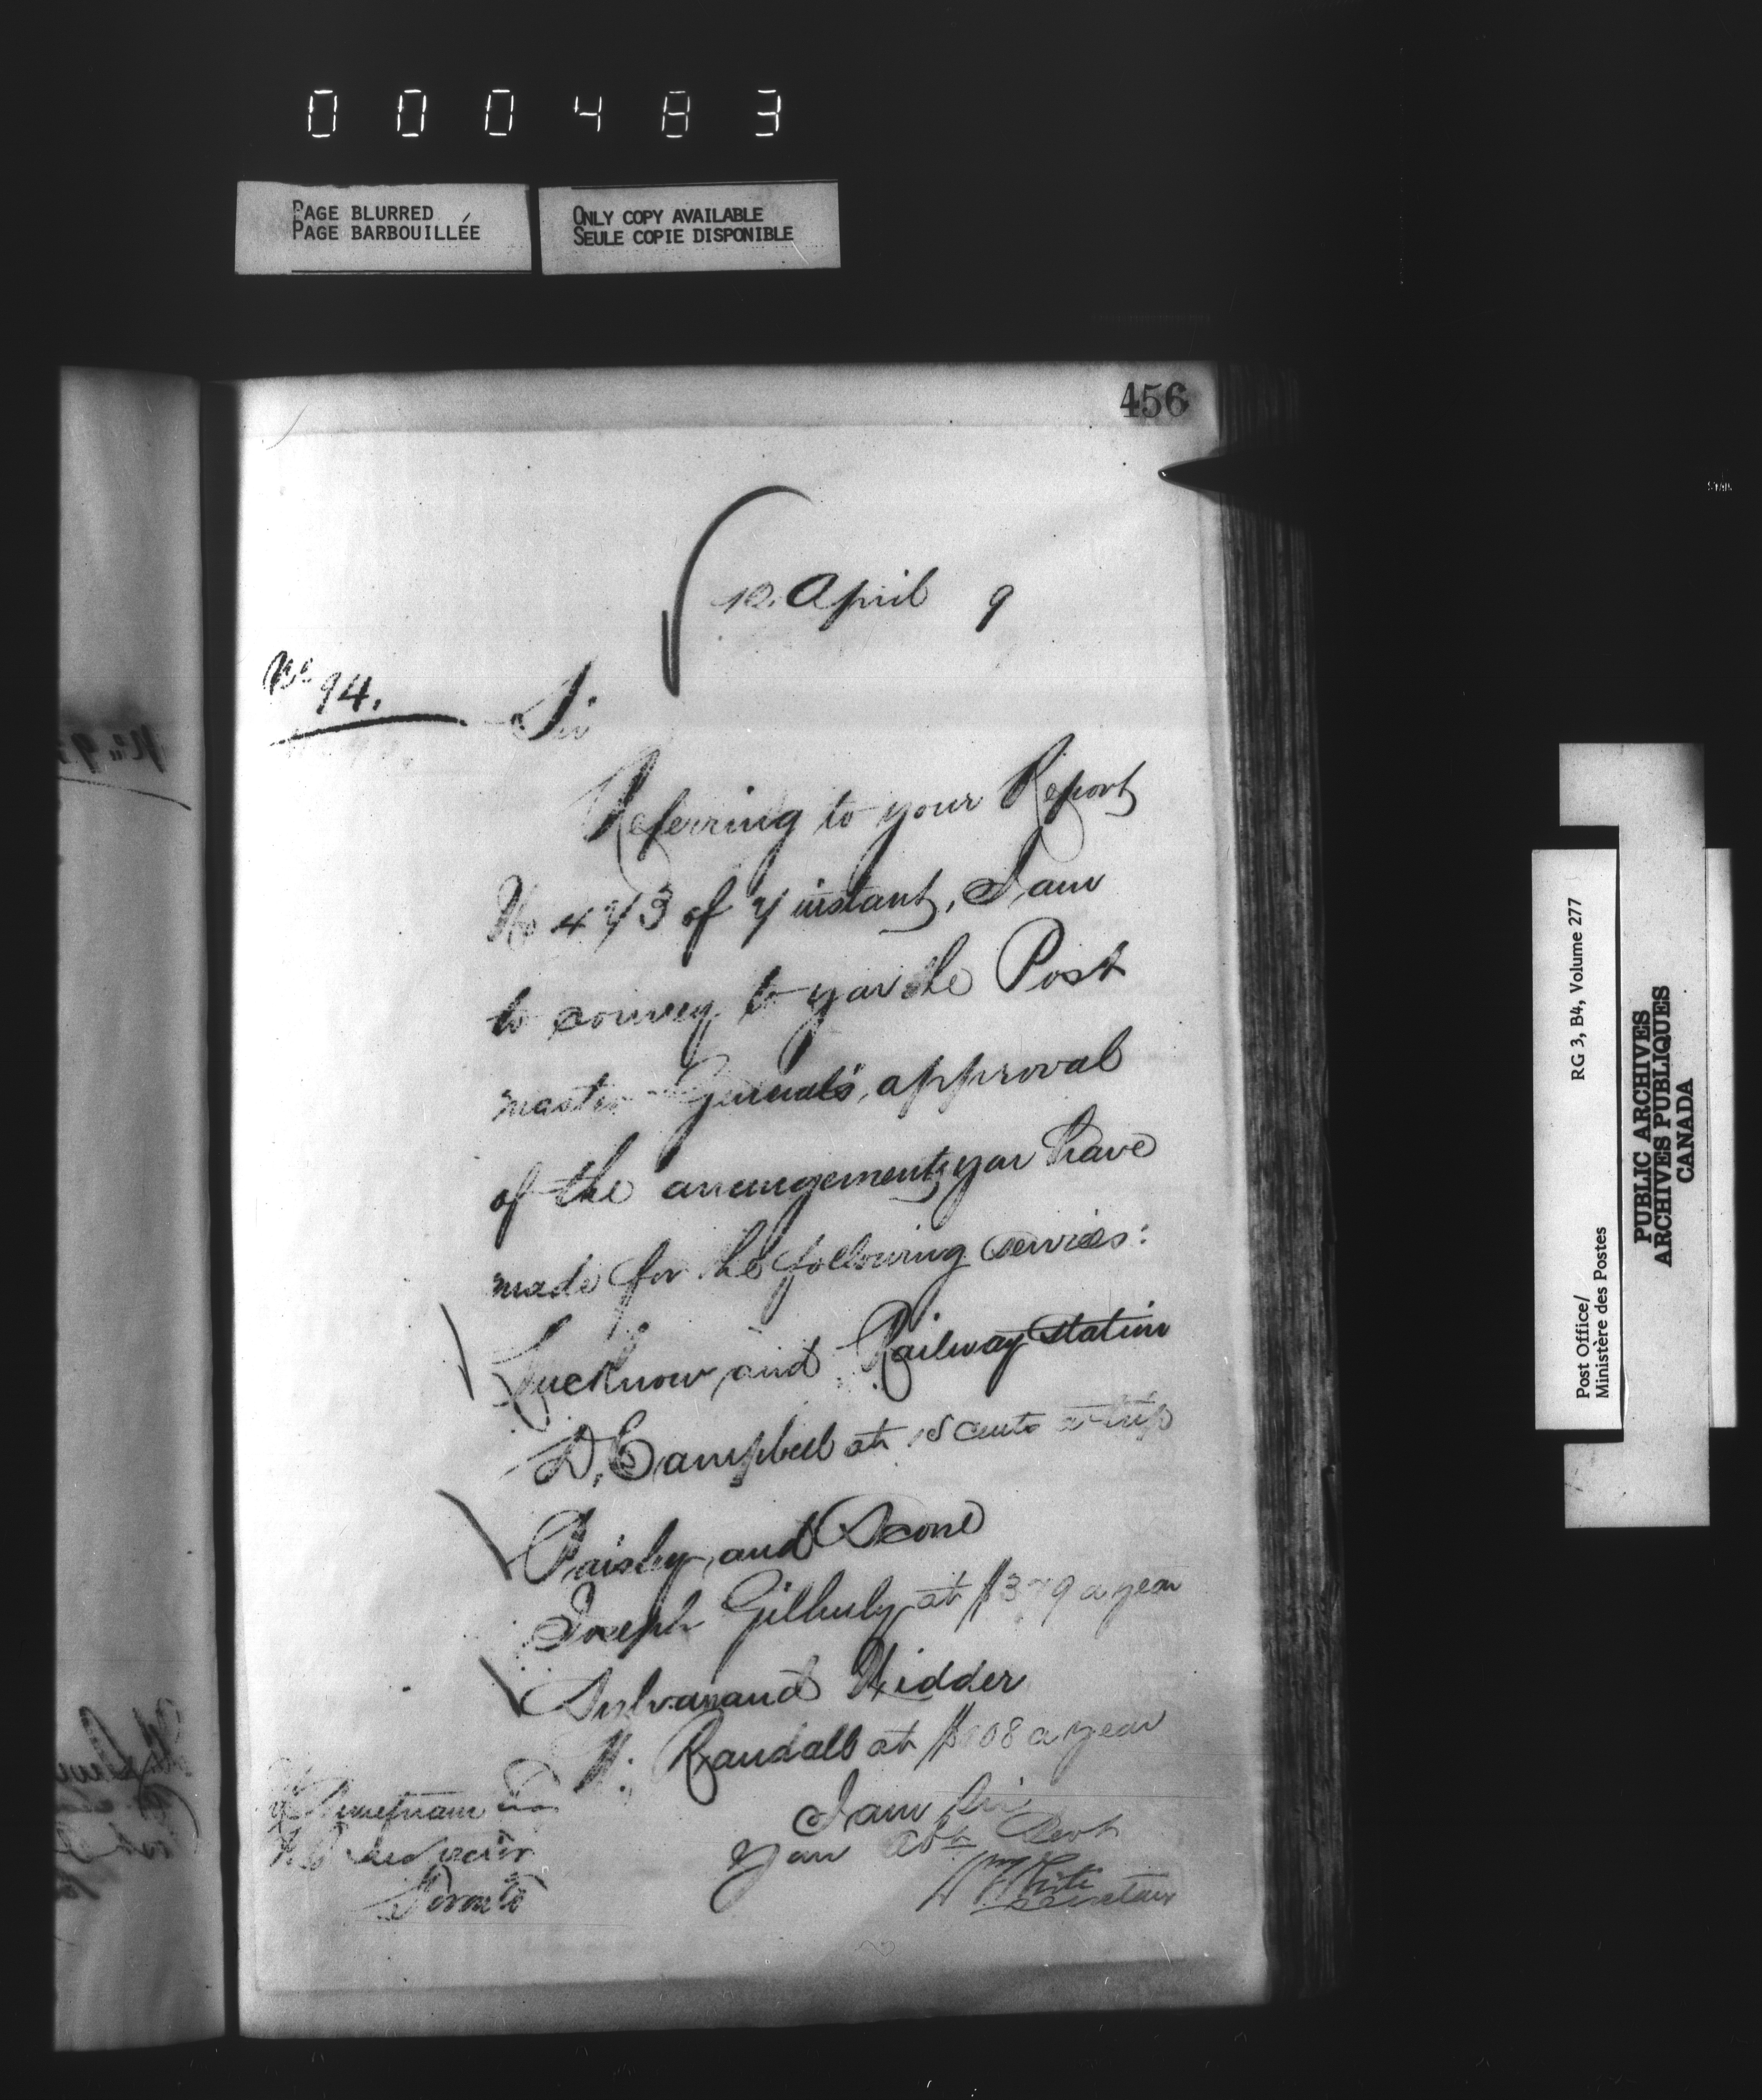 000483
PAGE BLURRED
PAGE BARBOUILLÉE
ONLY COPY AVAILABLE
SEULE COPIE DISPONIBLE
456
12. April 9
No 94.
Sir
Referring to your Report
No 473 of 7 instant, I am
to convey to you the Post
master General's, approval
of the arrangements you have
made for the following services:
Lucknow and Railway Station
D. Campbell at 15 cents a trip
Paisley and Scone
Joseph Gilhuly at $379 a year
Sylvan and Widder
Randall at $108 a year
I am Sir
Your Obt Servt
Wm White
Secretary
Esq
Toronto
RG 3, B4, Volume 277
Post Office/
Ministère des Postes
PUBLIC ARCHIVES
ARCHIVES PUBLIQUES
CANADA